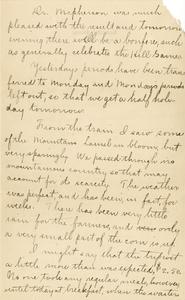 Dr. McPherson was much
pleased with the result and tomorrow
evening there will be a bonfire, such
as generally celebrate the Hill games.
Yesterdays periods have been trans
ferred to Monday and Mondays periods
left out, so that we get a half holi-
day tomorrow.
From the train I saw some
of the Mountain Laurel in bloom, but
very sparingly. We passed through no
mountainous country so that may
account for its scarcity. The weather
was perfect and has been in fact for
weeks. There has been very little
rain for the farmers, and only
a very small part of the corn is up.
I might say that the trip cost
a little more than was expected, $2.50.
No one took any regular meals, however,
until today at breakfast, when the waiter